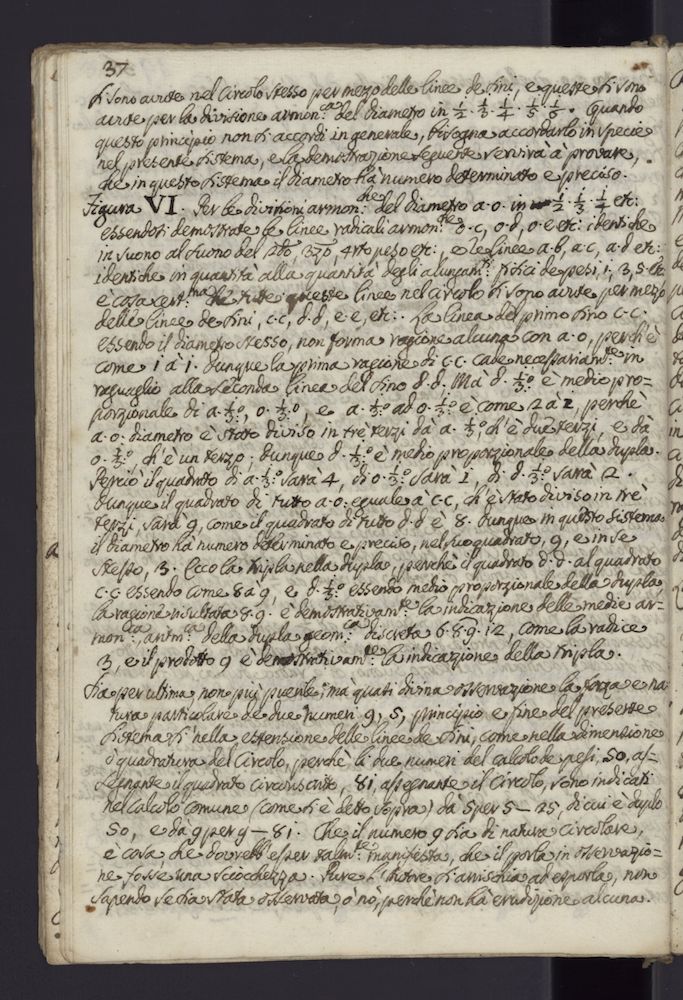 37
si sono avute nel Circolo stesso per mezzo delle linee de Sini, e queste si sono
avute per la divisione armon:ca del diametro in 1/2 · 1/3 · 1/4 · 1/5 · 1/6. Quando
questo principio non si accordi in generale, bisogna accordarlo in specie
nel presente sistema, e la demostrazione seguente servirà à provare,
che in questo sistema il diametro hà numero determinato e preciso.
Figura VI. Per le divisioni armon:che del diametro a·o· in 1/2 · 1/3 · 1/4 etc:
essendosi demostrate le linee radicali armon:che o·c, o·d, o·e etc: identiche
in suono al suono del 2do, 3zo, 4rto peso etc:, e le linee a·b, a·c, a·d etc:
identiche in quantità alla quantità degli alungam:ti fisici de pesi, 1, 3, 5 etc
è cosa cert:ma che tutte queste linee nel circolo si sono avute per mezzo
delle linee de Sini, c·c, d·d, e·e, etc:. La linea del primo Sino c·c·
essendo il diametro stesso, non forma ragione alcuna con a·o, perch'è
come 1 à 1. Dunque la prima ragione di c·c· cade necessariam:te in
raguaglio alla seconda linea del Sino d·d. Mà d· 1/3·o è medio pro=
porzionale di a· 1/3·o, o· 1/3·o, e a· 1/3·o ad o· 1/3·o è come 2 à 1, perchè
a·o· diametro è stato diviso in trè terzi dà a· 1/3·o, ch'è due terzi, e dà
o· 1/3·o, ch'è un terzo; dunque d· 1/3·o è medio proporzionale della dupla.
Perciò il quadrato di a· 1/3·o sarà 4, di o· 1/3·o sarà 1, di d· 1/3·o sarà 2.
Dunque il quadrato di tutto a·o· eguale à c·c, ch'è stato diviso in trè
terzi, sarà 9, come il quadrato di tutto d·d è 8. Dunque in questo sistema
il diametro hà numero determinato e preciso, nel suo quadrato, 9, e in se
stesso, 3. Ecco la tripla nella dupla, perchè il quadrato d·d· al quadrato
c·c essendo come 8 à 9, e d· 1/3·o essendo medio proporzionale della dupla,
la ragione risultata 8·9· è demostrativam:te la indicazione delle medie ar=
mon:ca, aritm:ca della dupla geom:ca discreta 6·8·9·12, come la radice
3, e il prodotto 9 è demostrativam:te la indicazione della tripla.
Sia per ultima non più puerile, mà quasi divina osservazione la forza e na
tura particolare de due numeri 9, 5, principio e fine del presente
sistema sì nella estensione delle linee de Sini, come nella dimensione
ò quadratura del Circolo, perchè li due numeri del calcolo de pesi, 50, as=
segnante il quadrato circoscritto, 81, assegnante il Circolo, sono indicati
nel calcolo comune (come si è detto sopra) dà 5 per 5 — 25, di cui è duplo
50, e dà 9 per 9 — 81. Che il numero 9 sia di natura circolare,
è cosa che dovrebb'esser talm:te manifesta, che il porla in osservazio=
ne fosse una sciocchezza. Pure l'Autore si arrischia ad esporla, non
sapendo se sia stata osservata, ò nò, perchè non hà erudizione alcuna.